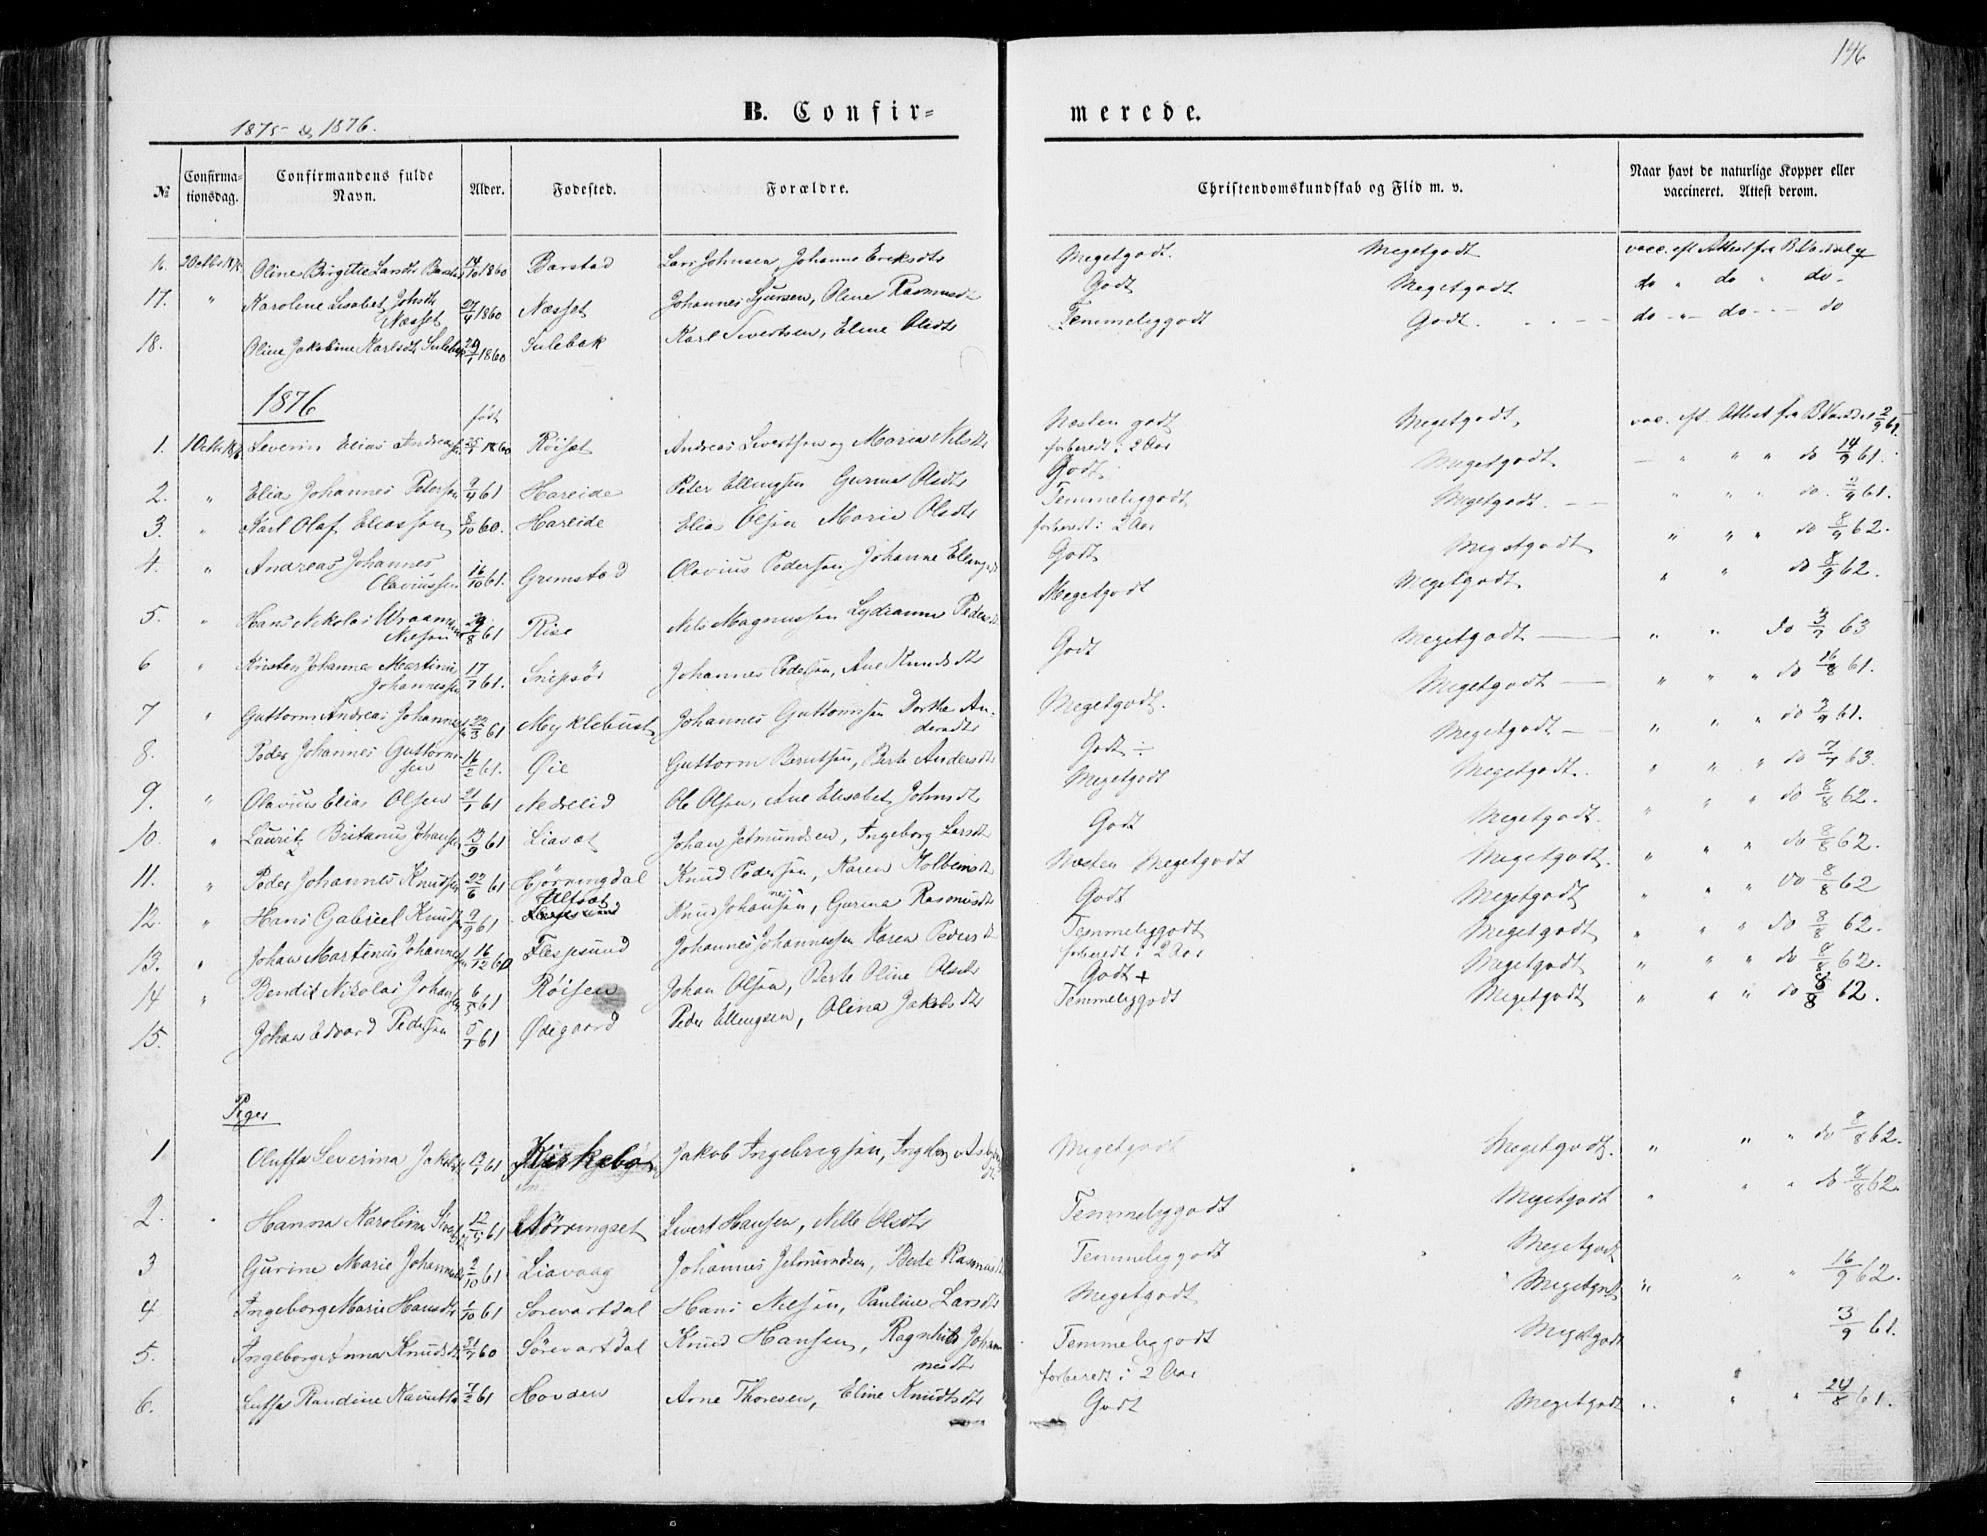 146
1875 & 1876.
B. Confir=
merede.
№
Confirma-
tionsdag.
Confirmandens fulde
Navn.
Alder.
Fødested.
Forældre.
Christendomskundskab og Flid m. v.
Naar havt de naturlige Kopper eller
vaccineret. Attest derom.
16. Oline Birgitte Larsdt 14/10 1860 Barstad Lars Johnsen, Johanne Eriksdtr Megetgodt. Megetgodt vacc. efl Attest fra
17. " Karoline Lisabet Johsdt
Næsset 27/4 1860 Næsset Johannes Sjursen, Oline Rasmusdt Godt Megetgodt do " do " do -
18. Oline Jakobine Karlsdt 1860 Sulebak Karl Sivertsen, Eline Olsdtr Temmeliggodt Godt. do - " - do - - - do
1876
født
1. Severin Elias 1860 Røiset Andreas Sivertsen og Maria Nilsdtr Næsten godt Megetgodt, vac. efl. Attest fra 2/9 61.
forberedt i 2 Aar
2. " Elias Johannes Petersen 9/4 61 Hareide Peter Ellingsen Gurina Olsdtr Godt Megetgodt " " " do 14/9 61.
3. " Karl Olaf Eliassen 8/10 60. Hareide Elias Olsen Marie Olsdtr Temmeliggodt Megetgodt. " " " do. 2/9 61.
forberedt i 2 Aar
4. " Andreas Johannes
Olaviussen 16/10 61. Grimstad Olavius Pedersen Johanne Godt Megetgodt " " " do 8/9 62.
5. " Hans Nikolai
Nilsen 29/8 61 Rise Nils Magnussen Lydianna Megetgodt Megetgodt " " do 8/9 62.
6 " Kristen Johannes Martinus
Johannessen 17/7 61. Snipsør Johannes Pedersen, Ane Knudsdtr Godt Megetgodt " " do 3/7 63
7 " Guttorm Andreas Johannes
22/3 61 Myklebust Johannes Guttormsen Dorthe An-
dersdtr Megetgodt. Megetgodt " " " do 61.
8. Peder Johannes Guttorm-
sen 16/2 61. Øie Guttorm Berntsen, Berte Andersdtr Godt ÷ Megetgodt " " " do 61.
9. " Olavius Elias Olsen 21/1 61 Nedrelid Ole Olsen, Ane Elisabet Johnsdtr Megetgodt Megetgodt. " " " do 7/7 63.
10. " Lauritz Britanus Johansen 13/9 61 Liaset Johan Jetmundsen, Ingeborg Larsdtr Godt Megetgodt. " " " do 8/8 62.
11. " Peder Johannes Knudsen 22/6 61 Hjørringdal Knud Pedersen, Karen Næsten Megetgodt Megetgodt. " " " do 8/8 62.
12. " Hans Gabriel Knudsen 9/9 61 Ulfsæt Knud Johannesen, Gurina Rasmusdtr Godt Megetgodt " " " do 8/8 62
13. " Johan Martinus Johannessen 16/12 60 Flesjesund Johannes Johannessen Karen Pedersdt Temmeliggodt Megetgodt " " " do 8/8 62.
forberedt i 2 Aar
14 " Bendik Nikolai Johansen 6/5 61 Røisen Johan Olsen, Berte Oline Olsdtr Godt + Megetgodt " " " do 8/8 62.
15. Johan Edvard Pedersen 5/7 61 Ødegaard Peder Ellingsen, Olina Jakobsdtr Temmeliggodt Megetgodt " " " do 8/8 62.
Piger
1 Oluffa Severina 61 Kirkebø Jakob Ingebrigtsen, Ingeborg Megetgodt Megetgodt. " " " do 8/8 62.
2. Hanna Karolina 12/5 61 Størringset Sivert Hansen, Nille Olsdtr Temmeliggodt Megetgodt " " " do 8/8 62.
3 Gurine Marie 2/10 61 Liavaag Johannes Jetmundsen, Berte Rasmusdt Temmeliggodt Megetgodt
4 Ingeborg Marie Hansdtr 1/10 61 Sørevartdal Hans Nilsen, Pauline Larsdtr Megetgodt Megetgodt " " " 16/9 62.
5. Ingeborg Anna Knudsdtr 60 Sørevartdal Knud Hansen, Ragnhild Johan-
nesdtr Temmeliggodt Megetgodt 3/9 61.
forberedt i 2 Aar
6. Luffa Randine 7/2 61 Hovden Arne Thoresen, Eline Knudtsdtr Godt Megetgodt " " " 24/8 61.